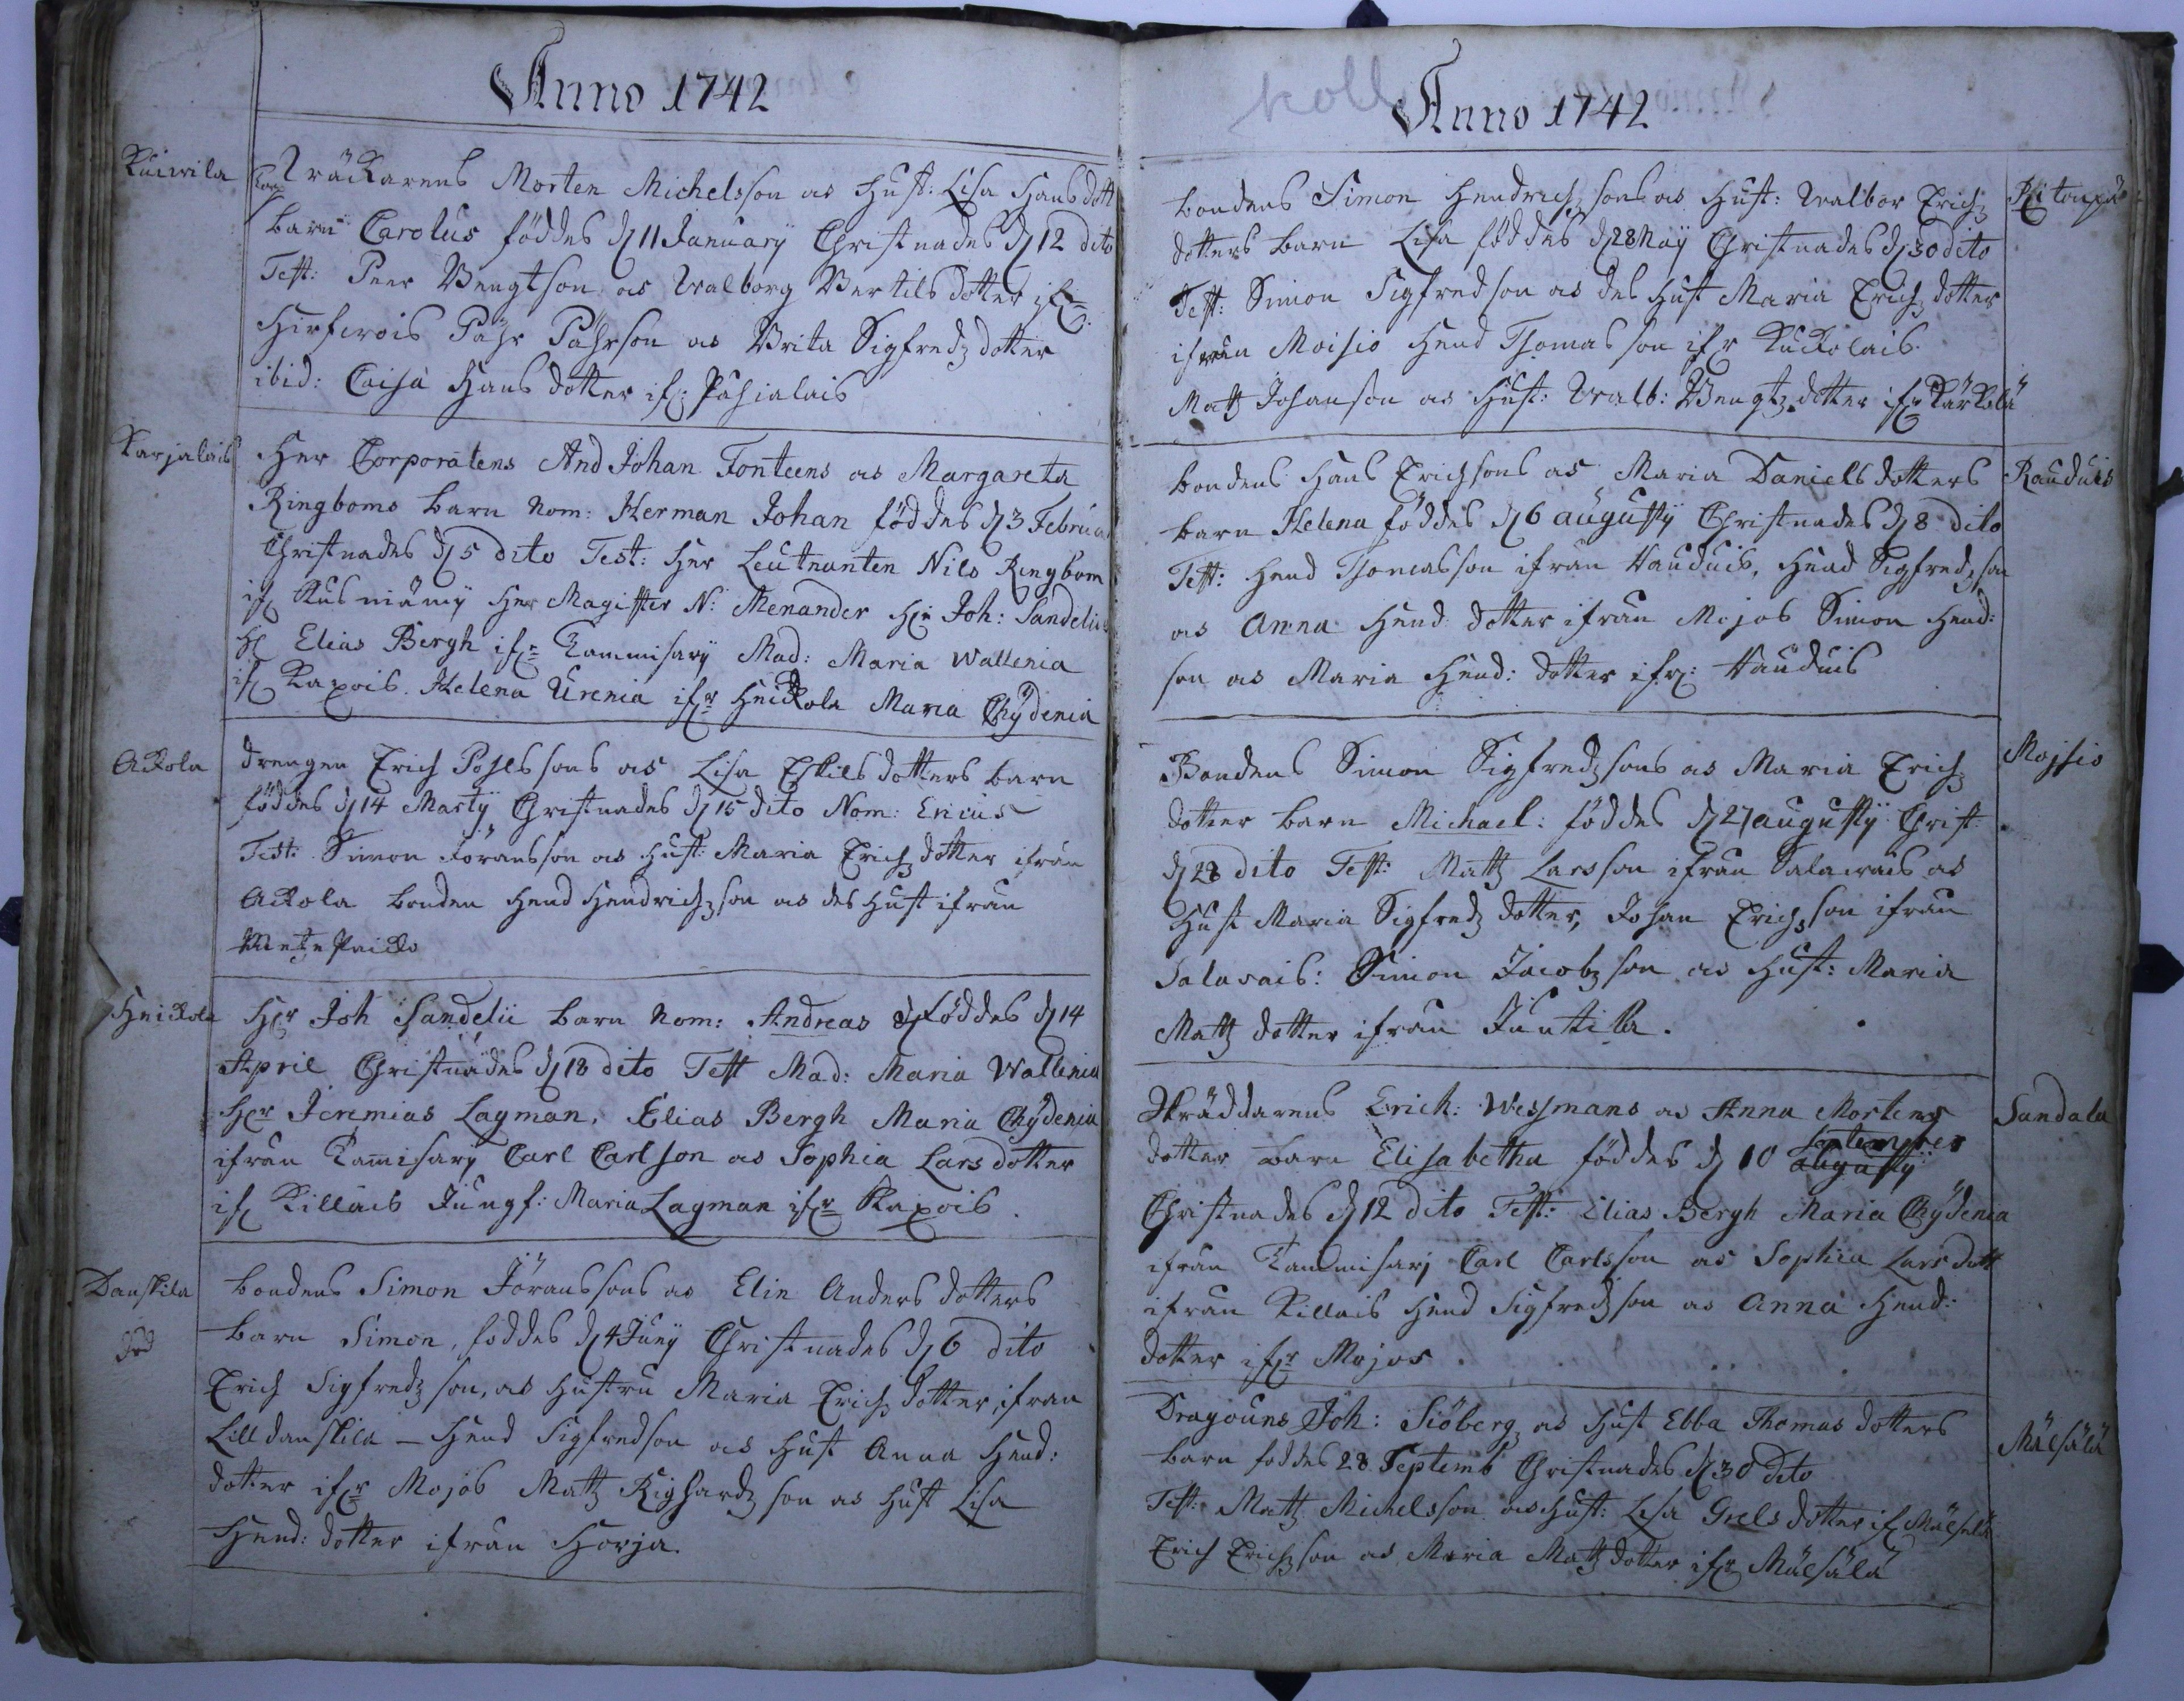 Anno 1742
Kuiwila
Träckarens Morten Michelsson as Hust: Lisa Hansdott
barn Carolus föddes d 11 Januarÿ Christnades d 12 dito
Test: Peer Bengtson as Walborg Bertils dotter ifr
Hirfwois Påhr Påhrson as Brita Sigfredz dotter
ibid: Caisa Hans dotter ifr: Påhialais
Karjalais
Her Corporalens And Johan Fonteens as Margareta
Ringboms barn Nom: Herman Johan föddes d 3 Februa
Christnades d 5 dito Test: Her Leutnanten Nils Ringbom
if Kusniämÿ Her Magister N: Menander Hr Joh: Sandelius
H Elias Bergh ifr Kammisarÿ Mad: Maria Wallenia
if Kaxois. Helena Urenia ifr Heickola Maria Chÿdenia
Ackola
drengen Erich Pohlssons as Lisa Eskils dotters barn
föddes d 14 Martÿ Christnades d 15 dito Nom: Ericus
Test: Simon Jöransson as Hust: Maria Erichz dotter ifrån
Ackola bonden Hend Hendrichzson as des Hust ifrån
Heickola
Hr Joh Sandelii barn Nom: Andreas föddes d 14
April Christnades d 18 dito Test Mad: Maria Wallenia
Hr Jeremias Lagman, Elias Bergh Maria Chÿdenia
ifrån Kamisarÿ Carl Carlson as Sophia Lars dotter
if Killais Jungf: Maria Lagman ifr Kaxois.
Danskila
bondens Simon Jöranssons as Elin Anders dotters
barn Simon, foddes d 4 Junÿ Christnades d 6 dito
Erich Sigfredz son, as Hustru Maria Erichz dotter, ifran
Lill danskila – Hend Sigfredson as Hust Anna Hend:
dotter ifr Mojos Mattz Righardz son as Hust Lisa
Hend: dotter ifrån Horja.
koll
Anno 1742
bondens Simon Hendrichz sons as Hust: Walbor Erichz
dotters barn Lisa föddes d 28 Maÿ Christnades d 30 dito
Test: Simon Sigfredson as des Hust Maria Erichz dotter
ifrån Moisio Hend Thomas son ifr Kuckolais.
Matz Johanson as Hust: Walb: Bengtz dotter ifr Kärkölä
bondens Hans Erichsons as Maria Daniels dotters
Rauduis
barn Helena föddes d 6 augustÿ Christnades d 8 dito
Test: Hend Thomasson ifrån Rauduis, Hend Sigfredz son
as Anna Hend dotter ifrån Mojos Simon Hend:
son as Maria Hend: dotter ifr: Rauduis
Mojsio
Bondens Simon Sigfredz sons as Maria Erichz
dotter barn Michael: föddes d 27 augustÿ Christ
d 28 dito Test: Mattz Larsson ifrån Salawais as
Hust Maria Sigfredz dotter, Johan Erichz son ifrån
Salavais: Simon Jacobz son as Hust: Maria
Matz dotter ifrån Juntila.
Sandala
Skräddarens Erich: Wessmans as Anna Mortens
dotter barn Elisabetha föddes d 10 September augustÿ
Christnades d 12 dito Test: Elias Bergh Maria Chÿdenia
ifrån Kammisarj Carl Carlsson as Sophia Lars dott
ifrån Killais Hend Sigfredz son as Anna Hend:
dotter ifr Mojos.
Dragouns Joh: Siöberg as Hust Ebba Thomas dotters
Mälsälä
barn foddes 28 Septemb Christnades d 30 dito
Test: Mattz Michelsson as Hust: Lisa Grels dotter if Mälsälä
Erich Erichz son as Maria Matz dotter ifr Mälsälä